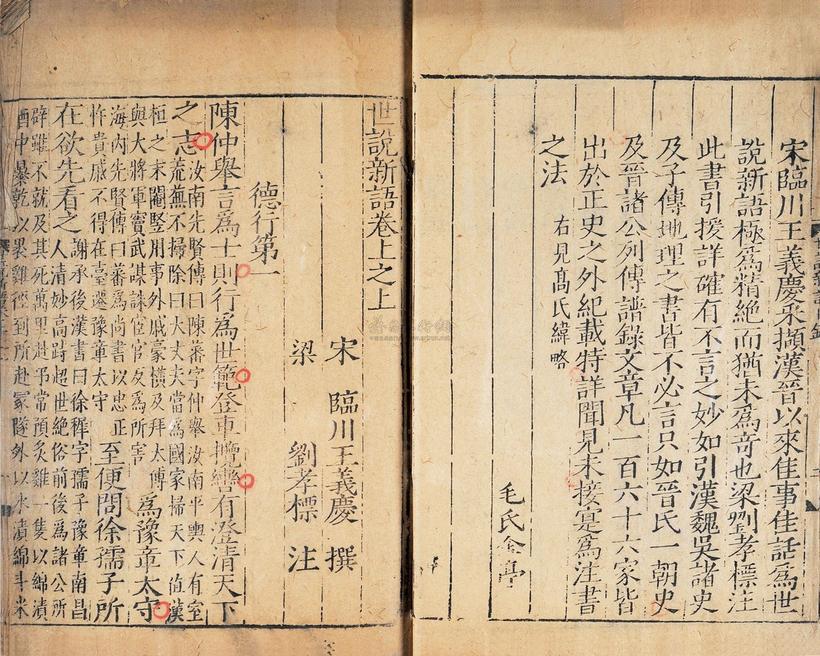 宋臨川王義慶采擷漢晉以來佳事佳話爲世
說新語極爲精絕而猶未爲奇也梁劉孝標注
此書引援詳確有不言之妙如引漢魏吳諸史
及子傳地理之書皆不必言只如晉氏一朝史
及晉諸公列傳譜錄文章凡一百六十六家皆
出於正史之外紀載特詳聞見未接寔爲注書
之法
右見髙氏緯略
世說新語卷上之上
宋 臨川王義慶 撰
梁 劉孝標 注
德行第一
陳仲舉言爲士則行爲世範登車攬轡有澄清天下
之志
汝南先賢傳曰陳蕃字仲舉汝南平輿人有室
荒蕪不掃除曰大丈夫當爲國家掃天下值漢
桓之末閹豎用事外戚豪橫及拜太傅
與大將軍竇武謀誅宦官反爲所害
爲豫章太守
海內先賢傳曰蕃爲尚書以忠正
忤貴戚不得在臺遷豫章太守
至便問徐孺子所
在欲先看之
謝承後漢書曰徐穉字孺子豫章南昌
人清妙高跱超世絕俗前後爲諸公所
辟雖不就及其死萬里赴弔常預炙雞一隻以綿漬
酒中暴乾以裹雞徑到所赴冢隧外以水漬綿斗米